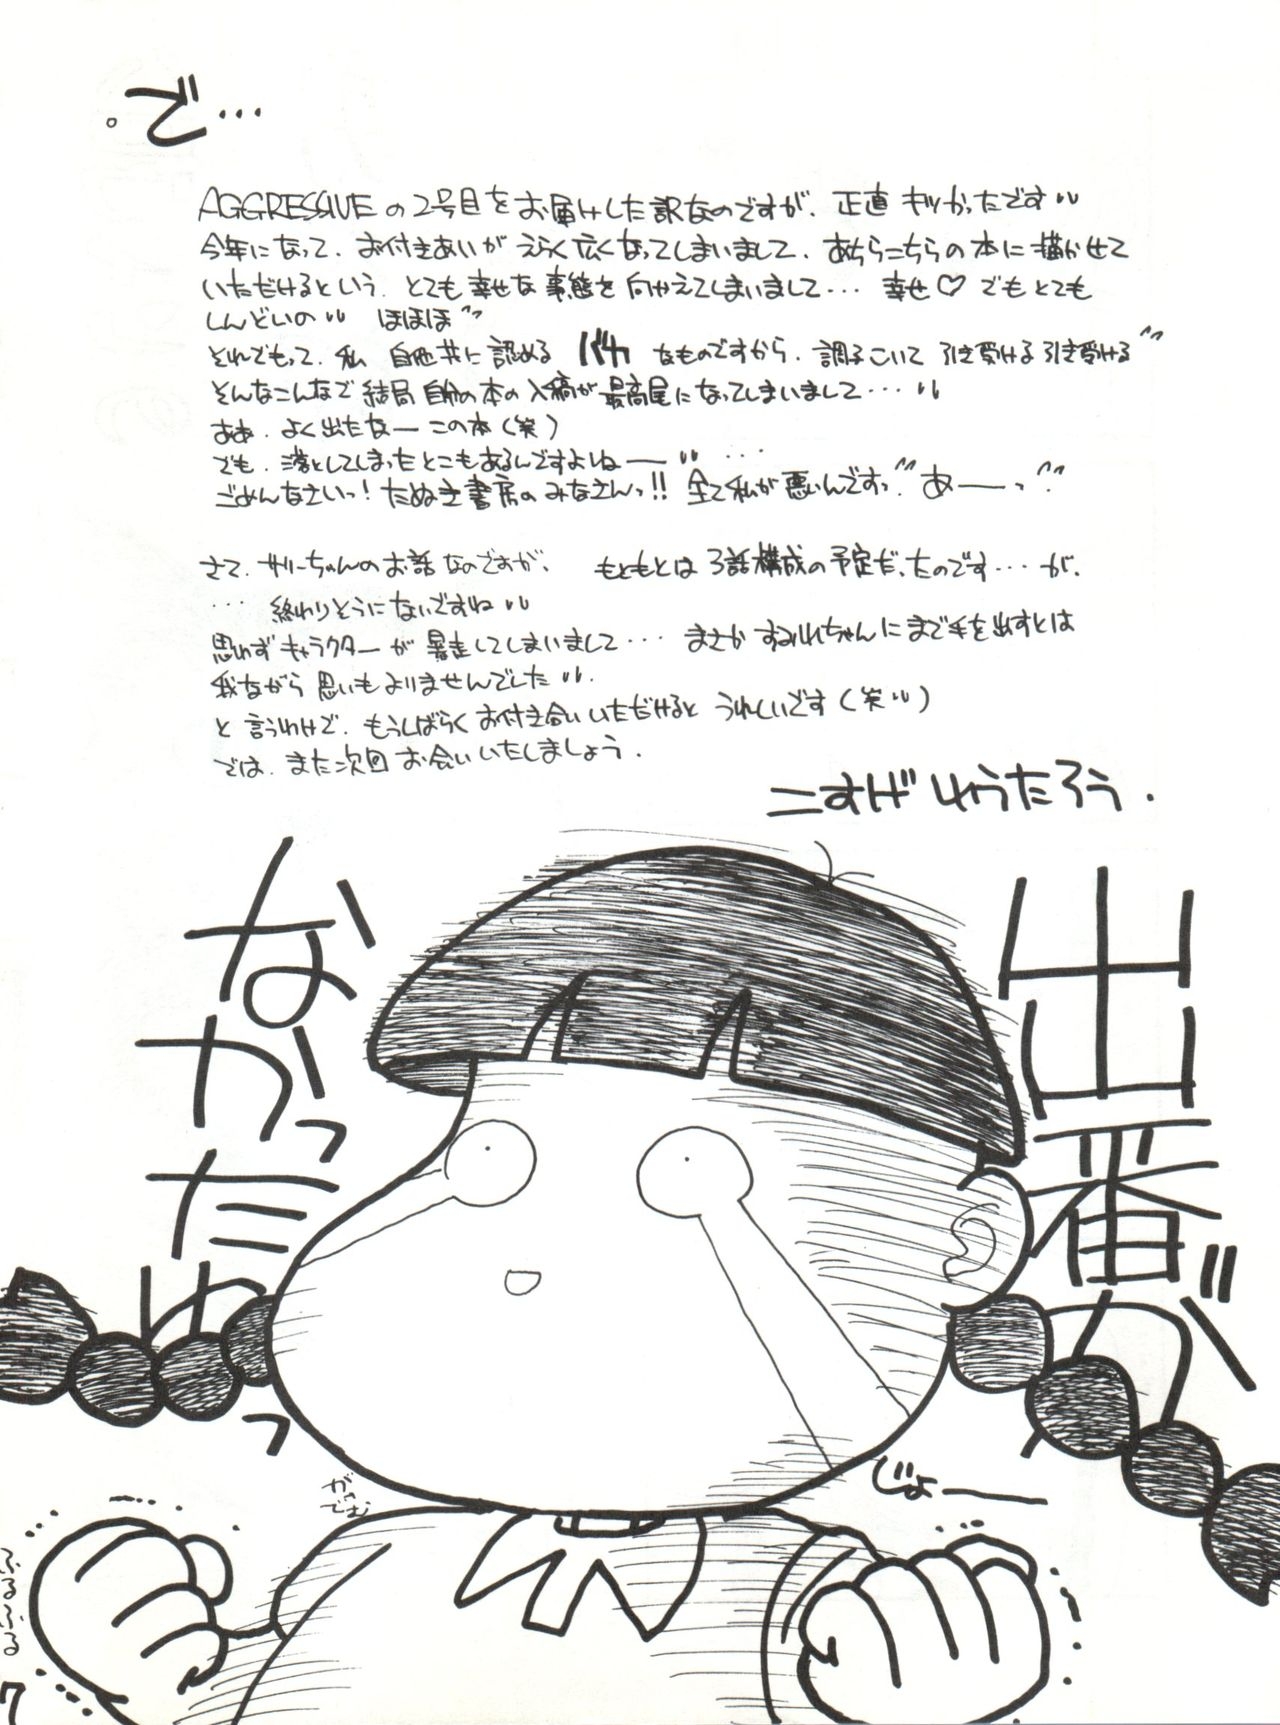 。で…
AGGRESSIVEの2号目をお届けした訳なのですが、正直キツかったです
今年になって、お付きあいがえらく広くなってしまいまして、あちらこちらの本に描かせて
いただけるという、とても幸せな事態を向かえてしまいまして… 幸せ♡でもとても
しんどいの ほほほ
それでもって、私 自他共に認める バカ なものですから、調子こいて引き受ける引き受ける
そんなこんなで結局自分の本の入稿が最高尾になってしまいまして…
ああ、よく出たなーこの本(笑)
でも、落としてしまったとこもあるんですよねー …
ごめんなさいっ!たぬき書房のみなさんっ!!全て私が悪いんですっ あーっ
さて、サリーちゃんのお話なのですが、もともとは3話構成の予定だったのです…が、
… 終わりそうにないですね
思わずキャラクターが暴走してしまいまして… まさかすみれちゃんにまで手を出すとは
我ながら思いもよりませんでした
と言うわけで、もうしばらくお付き合いいただけるとうれしいです(笑)
では、また次回お会いいたしましょう.
こすげりゅうたろう.
出番が
なかったゆっ
じょー
ぶるぶる
7